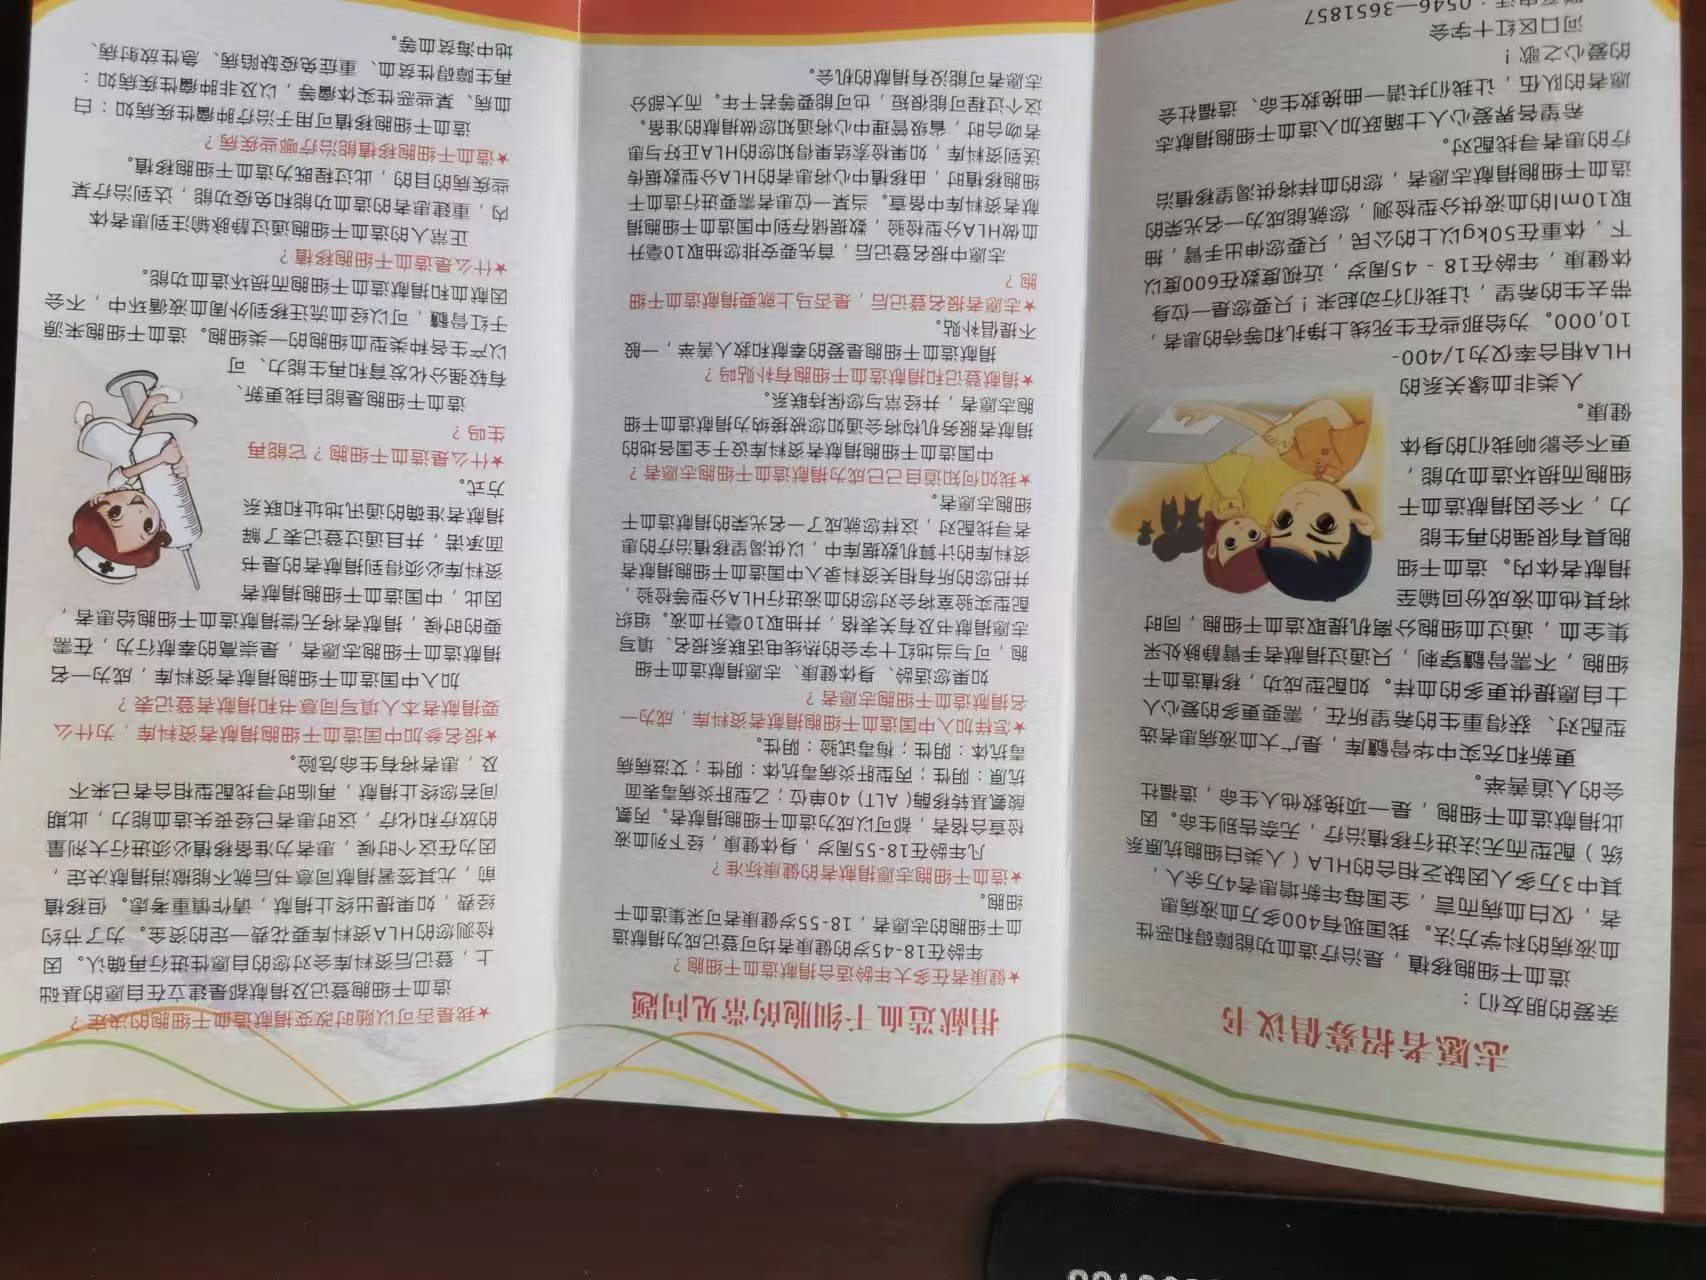 志愿者招募倡议书
亲爱的朋友们：
造血干细胞移植，是治疗造血功能障碍和恶性
血液病的科学方法。我国现有400多万血液病患
者，仅白血病而言，全国每年新增患者4万余人，
其中3万多人因缺乏相合的HLA（人类白细胞抗原系
统）配型而无法进行移植治疗，无奈告别生命。因
此捐献造血干细胞，是一项挽救他人生命，造福社
会的人道善举。
更新和充实中华骨髓库，是广大血液病患者选
型配对、获得重生的希望所在，需要更多的爱心人
士自愿提供更多的血样。如配型成功，移植造血干
细胞，不需骨髓穿刺，只通过捐献者手臂静脉处采
集全血，通过血细胞分离机提取造血干细胞，同时
将其他血液成份回输至
捐献者体内。造血干细
胞具有很强的再生能
力，不会因捐献造血干
细胞而损坏造血功能，
更不会影响我们的身体
健康。
人类非血缘关系的
HLA相合率仅为1/400-
10,000。为给那些在生死线上挣扎和等待的患者，
带去生的希望，让我们行动起来！只要您是一位身
体健康，年龄在18－45周岁，近视度数在600度以
下，体重在50kg以上的公民，只要您伸出手臂，抽
取10ml的血液供分型检测，您就能成为一名光荣的
造血干细胞捐献志愿者，您的血样将供渴望移植治
疗的患者寻找配对。
希望各界爱心人士踊跃加入造血干细胞捐献志
愿者的队伍，让我们共谱一曲挽救生命、造福社会
的爱心之歌！
河口区红十字会
联系电话：0546—3651857
捐献造血干细胞的常见问题
★健康者在多大年龄适合捐献造血干细胞？
年龄在18-45岁的健康者均可登记成为捐献造
血干细胞的志愿者，18-55岁健康者可采集造血干
细胞。
★造血干细胞志愿捐献者的健康标准？
凡年龄在18-55周岁，身体健康，经下列血液
检查合格者，都可以成为造血干细胞捐献者。丙氨
酸氨基转移酶(ALT)40单位；乙型肝炎病毒表面
抗原：阴性；丙型肝炎病毒抗体：阴性；艾滋病病
毒抗体：阴性；梅毒试验：阴性。
★怎样加入中国造血干细胞捐献者资料库，成为一
名捐献造血干细胞志愿者？
如果您适龄、身体健康、志愿捐献造血干细
胞，可与当地红十字会的热线电话联系报名、填写
志愿捐献书及有关表格，并抽取10毫升血液。组织
配型实验室将会对您的血液进行HLA分型等检验，
并把您的所有相关资料录入中国造血干细胞捐献者
资料库的计算机数据库中，以供渴望移植治疗的患
者寻找配对，这样您就成了一名光荣的捐献造血干
细胞志愿者。
★我如何知道自己已成为捐献造血干细胞志愿者？
中国造血干细胞捐献者资料库设于全国各地的
捐献者服务机构将会通知您被接纳为捐献造血干细
胞志愿者，并经常与您保持联系。
★捐献登记和捐献造血干细胞有补贴吗？
捐献造血干细胞是爱的奉献和救人善举，一般
不提倡补贴。
★志愿者报名登记后，是否马上就要捐献造血干细
胞？
志愿申报名登记后，首先要安排您抽取10毫升
血做HLA分型检验，数据储存到中国造血干细胞捐
献者资料库中备查。当某一位患者需要进行造血干
细胞移植时，由移植中心将患者的HLA分型数据传
送到资料库，如果检索结果得知您的HLA正好与患
者吻合时，省级管理中心将通知您做捐献的准备。
这个过程可能很短，也可能要等若干年。而大部分
志愿者可能没有捐献的机会。
★我是否可以随时改变捐献造血干细胞的决定？
造血干细胞登记及捐献都是建立在自愿的基础
上，登记后资料库会对您的自愿性进行再确认。因
检测您的HLA资料库要花费一定的资金。为了节约
经费，如果提出终止捐献，请作慎重考虑。但移植
前，尤其签署捐献同意书后就不能撤消捐献决定，
因为在这个时候，患者为准备移植必须进行大剂量
的放疗和化疗，这时患者已经丧失造血能力，此期
间若您终止捐献，再临时寻找配型相合者已来不
及，患者将有生命危险。
★报名参加中国造血干细胞捐献者资料库，为什么
要捐献者本人填写同意书和捐献者登记表？
加入中国造血干细胞捐献者资料库，成为一名
捐献造血干细胞志愿者，是崇高的奉献行为，在需
要的时候，捐献者将无偿捐献造血干细胞给患者，
因此，中国造血干细胞捐献者
资料库必须得到捐献者的是书
面承诺，并且通过登记表了解
捐献者准确的通讯地址和联系
方式。
★什么是造血干细胞？它能再
生吗？
造血干细胞是能自我更新、
有较强分化发育和再生能力、可
以产生各种类型血细胞的一类细胞。造血干细胞来源
于红骨髓，可以经血流迁移到外周血液循环中，不会
因献血和捐献造血干细胞而损坏造血功能。
★什么是造血干细胞移植？
正常人的造血干细胞通过静脉输注到患者体
内，重建患者的造血功能和免疫功能，达到治疗某
些疾病的目的，此过程既为造血干细胞移植。
★造血干细胞移植能治疗哪些疾病？
造血干细胞移植可用于治疗肿瘤性疾病如：白
血病、某些恶性实体瘤等，以及非肿瘤性疾病如：
再生障碍性贫血、重症免疫缺陷病、急性放射病、
地中海贫血等。